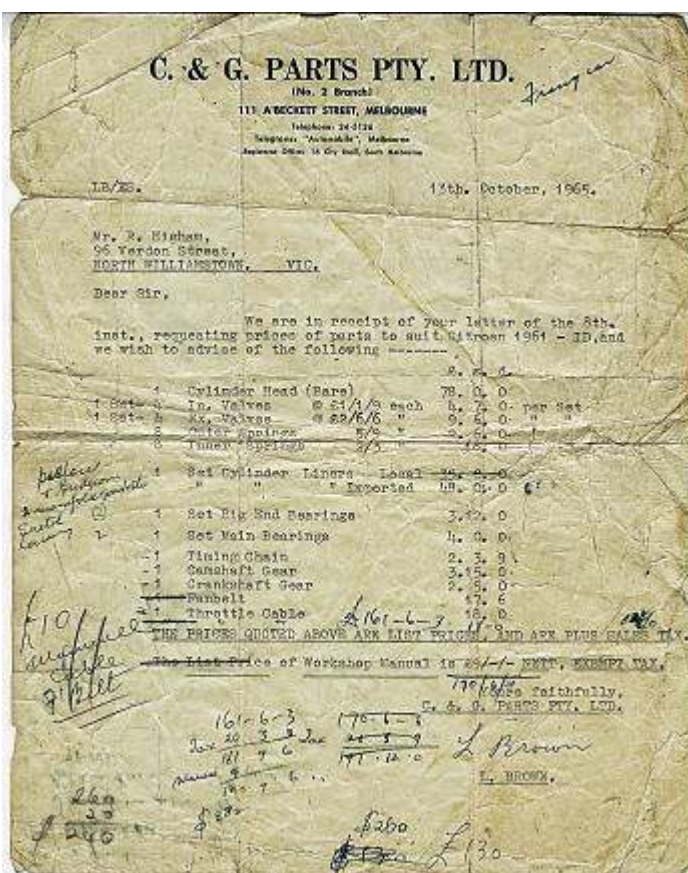 C. & G. PARTS PTY. LTD.
(No. 2 Branch)
111 A'BECKETT STREET, MELBOURNE
Telephone: 34-5126
Telegrams: "Automobile", Melbourne
LB/ES. 13th. October, 1965.
Mr. R. Higham,
96 Verdon Street,
NORTH WILLIAMSTOWN. VIC.
Dear Sir,
We are in receipt of your letter of the 8th.
inst., requesting prices of parts to suit Citroen 1961 - ID, and
we wish to advise of the following -------
1 Cylinder Head (Bare) 78. 0. 0
1 Set- 4 In. Valves @ £1/1/9 each 4. 7. 0. per Set
1 Set- 4 Ex. Valves @ £2/6/6 " 9. 6. 0 " "
8 Outer Springs
8 Inner Springs
1 Set Cylinder Liners - Local
" " " Imported 48. 0. 0
1 Set Big End Bearings 3.12. 0
1 Set Main Bearings 4. 0. 0
-1 Timing Chain 2. 3. 9
-1 Camshaft Gear 3.15. 0
-1 Crankshaft Gear
1 Fanbelt 17. 6
1 Throttle Cable 18. 0
£161-6-3
THE PRICES QUOTED ABOVE ARE LIST PRICES, AND ARE PLUS SALES TAX.
The List Price of Workshop Manual is NETT. EXEMPT TAX.
Yours faithfully,
C. & G. PARTS PTY. LTD.
£10
161-6-3
Tax 20 3 3 Tax
L Brown
L. BROWN.
260
20
$ 240
$260
£130